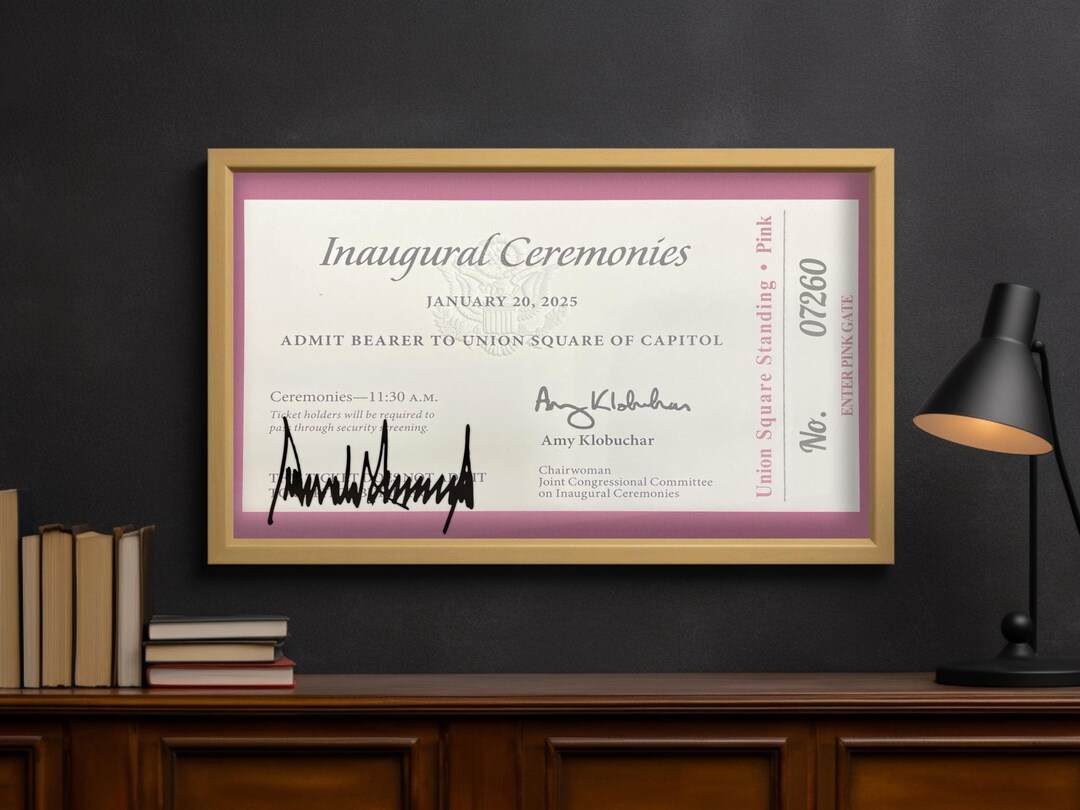 Inaugural Ceremonies
JANUARY 20, 2025
ADMIT BEARER TO UNION SQUARE OF CAPITOL
Ceremonies—11:30 A.M.
Ticket holders will be required to
pass through security screening.
TICKET DOES NOT ADMIT
Amy Klobuchar
Amy Klobuchar
Chairwoman
Joint Congressional Committee
on Inaugural Ceremonies
Union Square Standing • Pink
No. 07260
ENTER PINK GATE